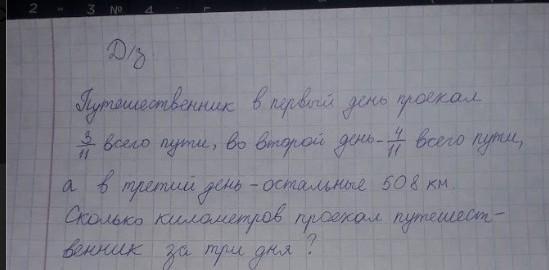 2 3 № 4
Д/з
Путешественник в первый день проехал
3/11 всего пути, во второй день - 4/11 всего пути,
а в третий день - остальные 508 км.
Сколько километров проехал путешест-
венник за три дня?